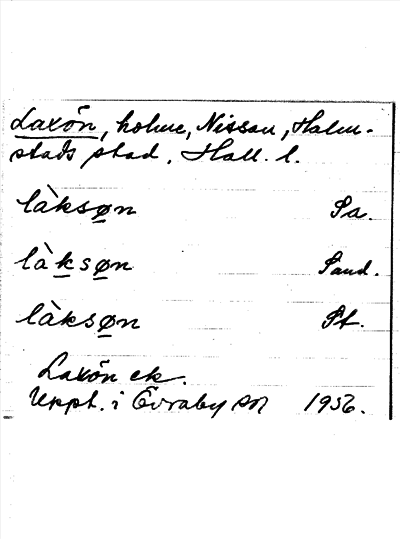 Laxön, holme, Nissan, Halm-
stads stad, Hall. l.
làksøn Sa.
làksøn Sand.
làksøn St.
Laxön ek.
Uppt. i Övraby sn 1956.